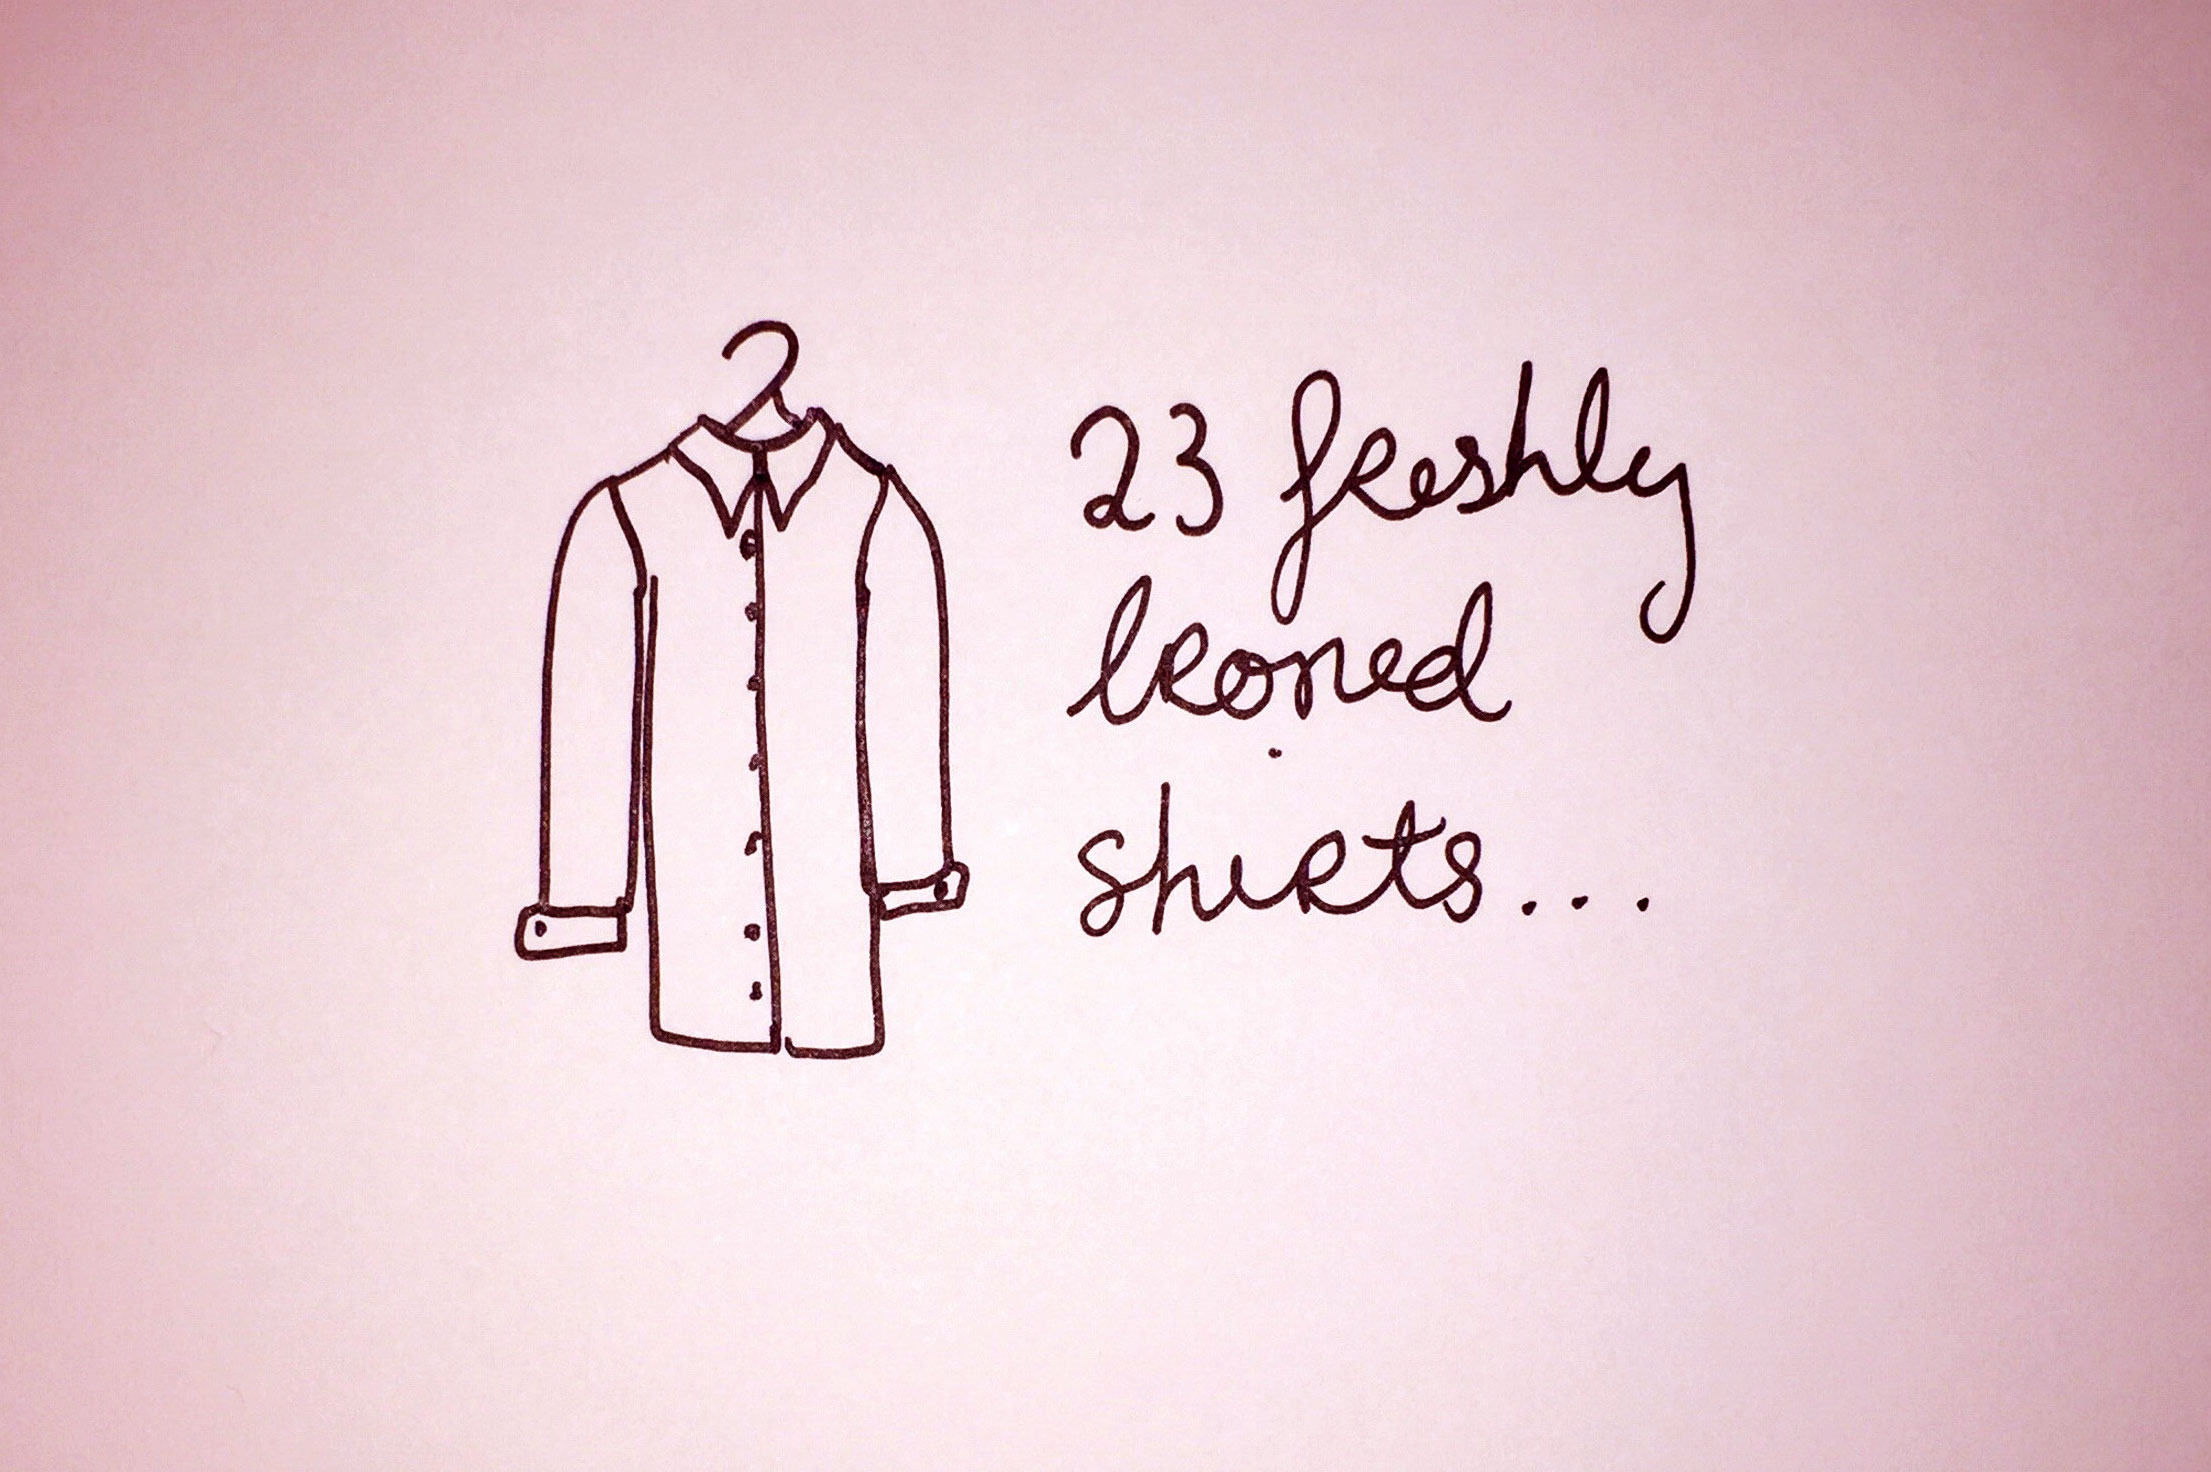 23 freshly
Ironed
shirts...